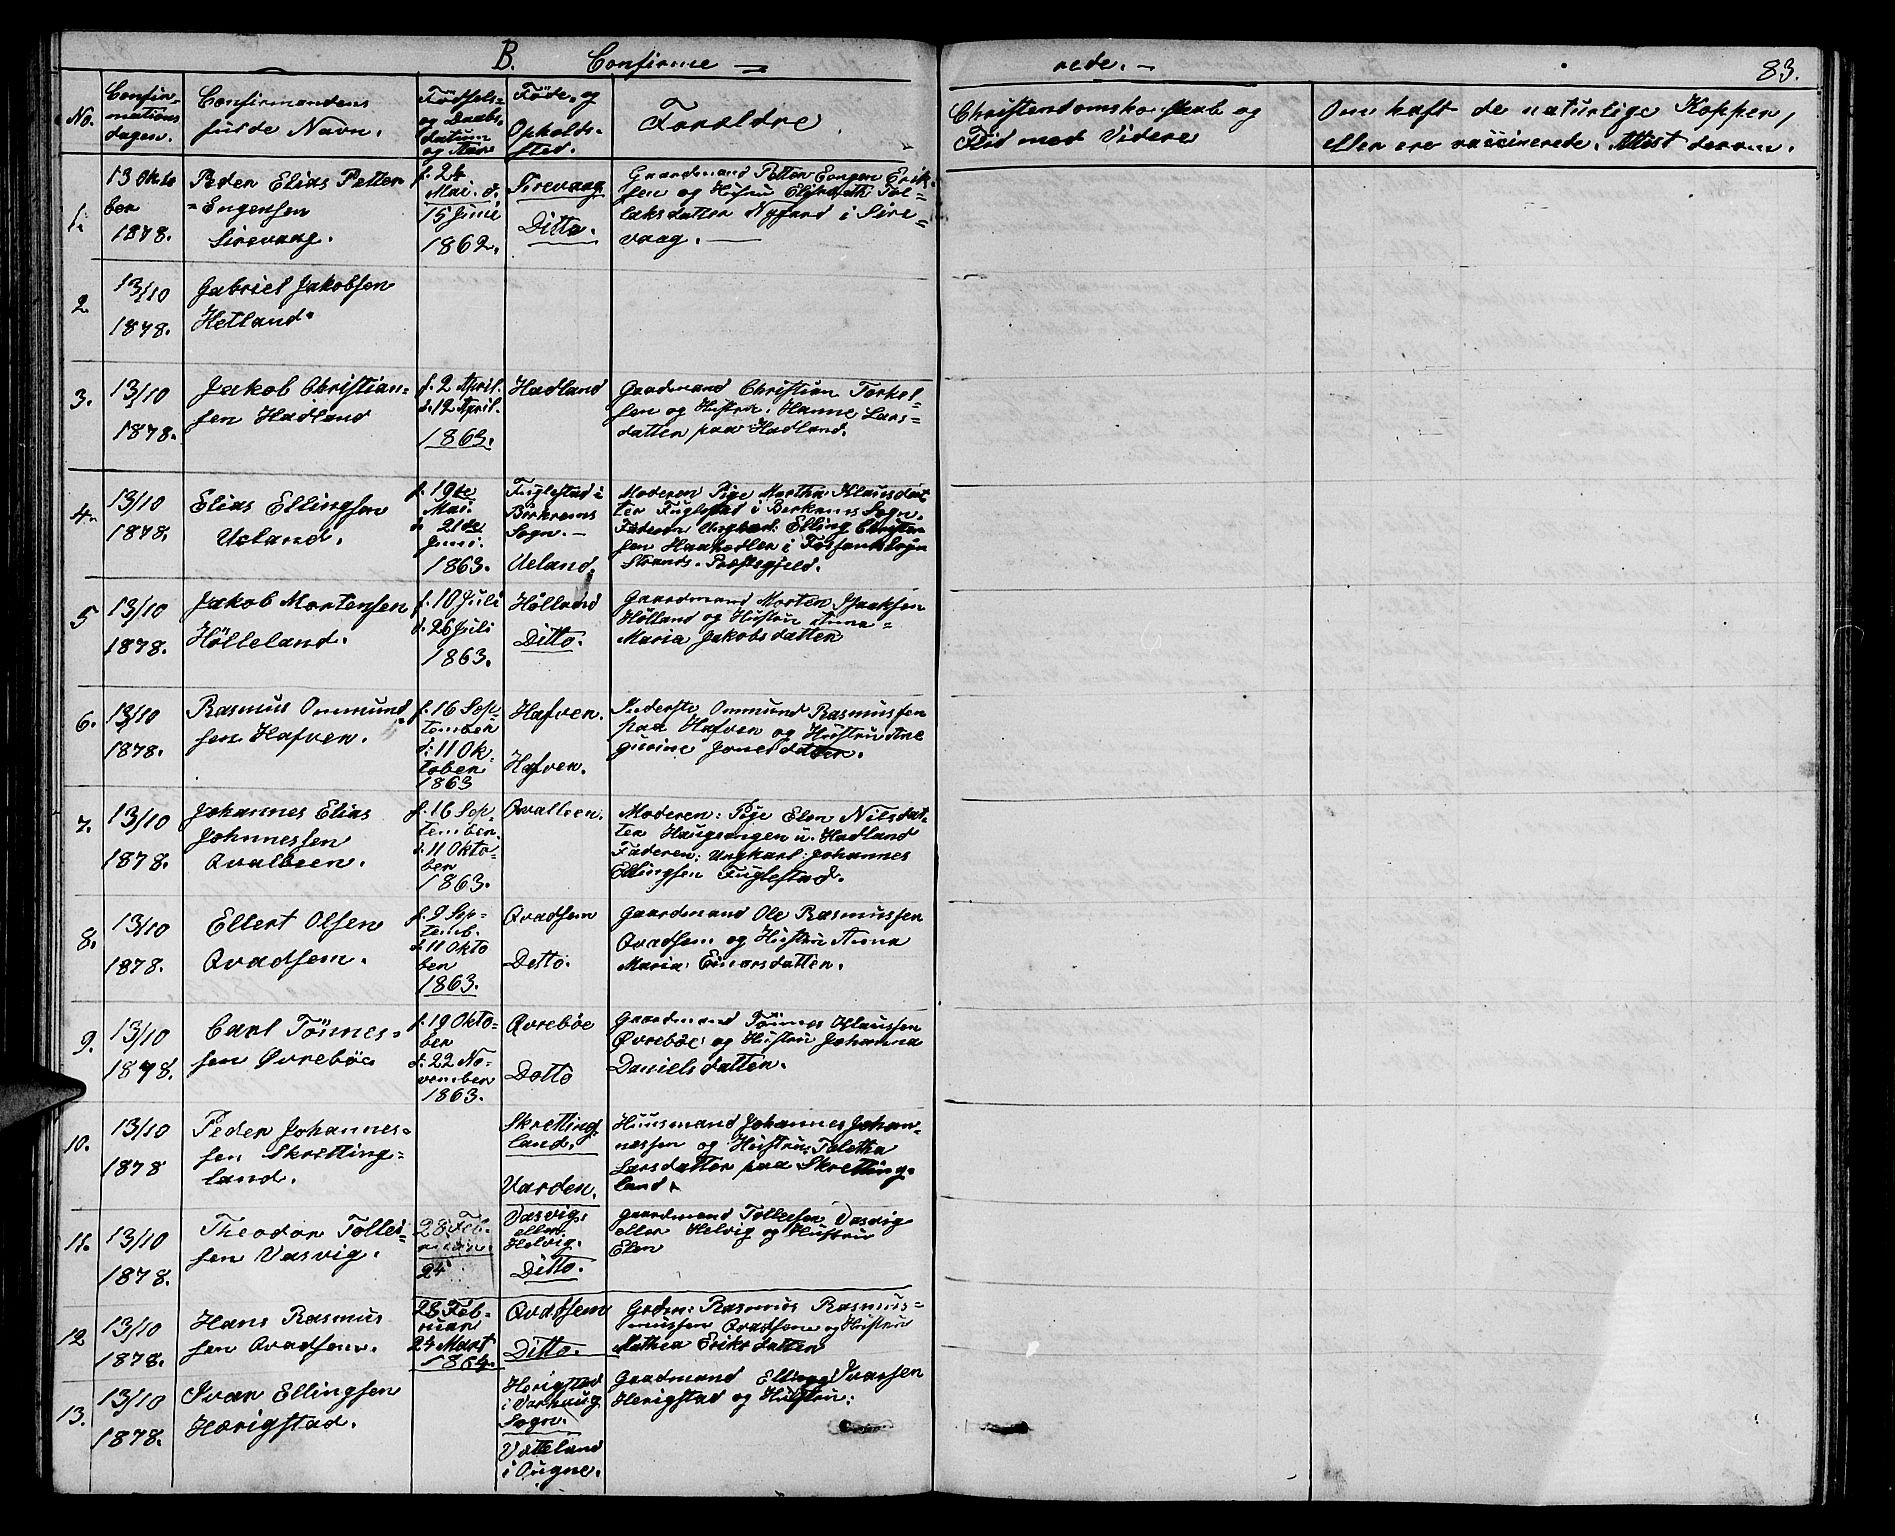 B. Confirme
rede. -
83.
No.
Confir-
mations
dagen.
Confirmandens
fulde Navn.
Fødsels-
og Daabs-
datum
og Aar
Føde- og
Opholds-
sted.
Forældre
Christendomskundskab og
Flid med Videre
Om haft de naturlige Kopper,
eller ere vaccinerede. Attest derom.
1.
13 Okto
ber
1878.
Peder Elias Petter
=Engensen
Sirevaag.
f. 24
Mai. d.
15 Juni
1862.
Sirevaag
Ditto.
Gaardmand Petter Eengen Erik-
sen og Hustru Elisabeth Tol-
laksdatter Nygaard i Sire-
vaag. -
2.
13/10
1878.
Gabriel Jakobsen
Hetland.
3.
13/10
1878.
Jakob Christian-
sen Hadland
f. 2 April.
d. 12 April.
1863.
Hadland
Gaardmand Christian Torkel-
sen og Hustru: Hanne Lars-
datter paa Hadland.
4.
13/10
1878.
Elias Ellingsen
Ueland.
f. 19de
Mai.
d. 21de
Juni.
1863.
Fuglestad i
Birkrems
Sogn. -
Ueland.
Moderen Pige Martha Klausdat
ter Fuglestad i Berkrems Sogn.
Faderen Ungkarl: Elling Christen
sen Haahedler i Fossands Sogn
Strands Præstegjeld.
5
13/10
1878.
Jakob Mortensen
Hölleland.
f. 10 Juli
d. 26 Juli
1863.
Hölland
Ditto.
Gaardmand Morten Isaksen
Hölland og Hustru Anna=
Maria Jakobsdatter
6.
13/10
1878.
Rasmus Ommund
sen Hafven.
f. 16 Sep-
tember
d: 11 Ok-
tober
1863
Hafven.
Hafven.
Inderste Ommund Rasmussen
paa Hafven og Hustru Ane
gurine Jonesdatter.
7.
13/10
1878.
Johannes Elias
Johnnessen
Qvalbeen.
f. 16 Sep-
tember.
d. 11 Okto-
ber
1863.
Qvalbeen.
Moderen: Pige Elen Nilsdat-
ter Haugeangen u. Hadland
Faderen: Ungkarl: Johannes
Ellingsen Fuglestad.
8.
13/10
1878.
Ellert Olsen
Qvadsem.
f. 9 Sep-
temb.
d. 11 Okto
ber
1863.
Qvadsem
Detto.
Gaardmand Ole Rasmussen
Qvadsem og Hustru Anna
Maria Einarsdatter.
9.
13/10
1878.
Carl Tönnes-
sen Øvreböe
f. 19 Okto-
ber
d. 22 No-
vember
1863.
Øvrebøe
Dotto
Gaardmand Tönnes Klaussen
Øvrebøe og Hustru Johanna
Danielsdatter.
10.
13/10
1878
Peder Johannes=
sen Skretting=
land.
Skretting
land.
Varden.
Huusmand Johannes Johan-
nessen og Hustru: Taletha
Larsdatter paa Skretting-
land.
11.
13/10
1878.
Theodor Tollei-
sen Vasvig.
28 Feb-
ruar.
24
Vasvig.
eller
Helvig.
Ditto.
Gaardmand Tolleisen Vasvig
eller Helvig og Hustru
Elen
12
13/10
1878.
Hans Rasmus
sen Qvadsem.
28 Feb-
ruar
24 Mart
1864.
Qvadsem
Ditto.
Grdm: Rasmus Rasmus-
mussen Qvadsem og Hustru
Mathea Eriksdatter
13.
13/10
1878.
Ivar Ellingsen
Hærigstad.
Herigstad
i Varhaug
Sogn.
Vatteland
i Ougne.
Graadmand Elling Ivarsen
Herigstad og Hustru: